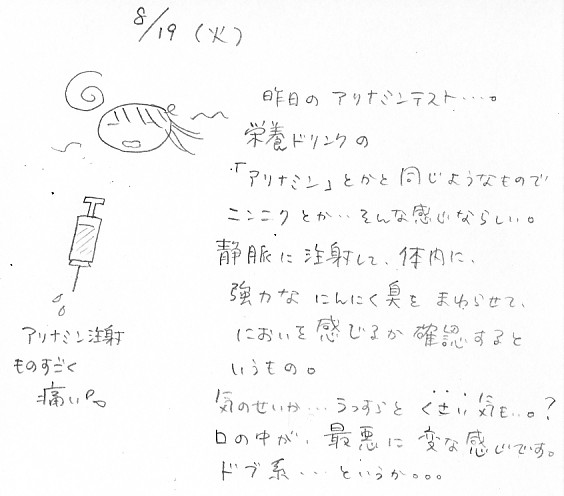 8/19 (火)
昨日の アリナミンテスト…。
栄養ドリンクの
「アリナミン」とかと同じようなもので
ニンニクとか‥そんな感じならしい。
静脈に注射して、体内に、
強力な にんにく臭を まわらせて、
においを感じるか確認すると
いうもの。
気のせいか…うっすらと くさい気も…。?
口の中が、最悪に変な感じです。
ドブ系…というか。。。
アリナミン注射
ものすごく
痛い。